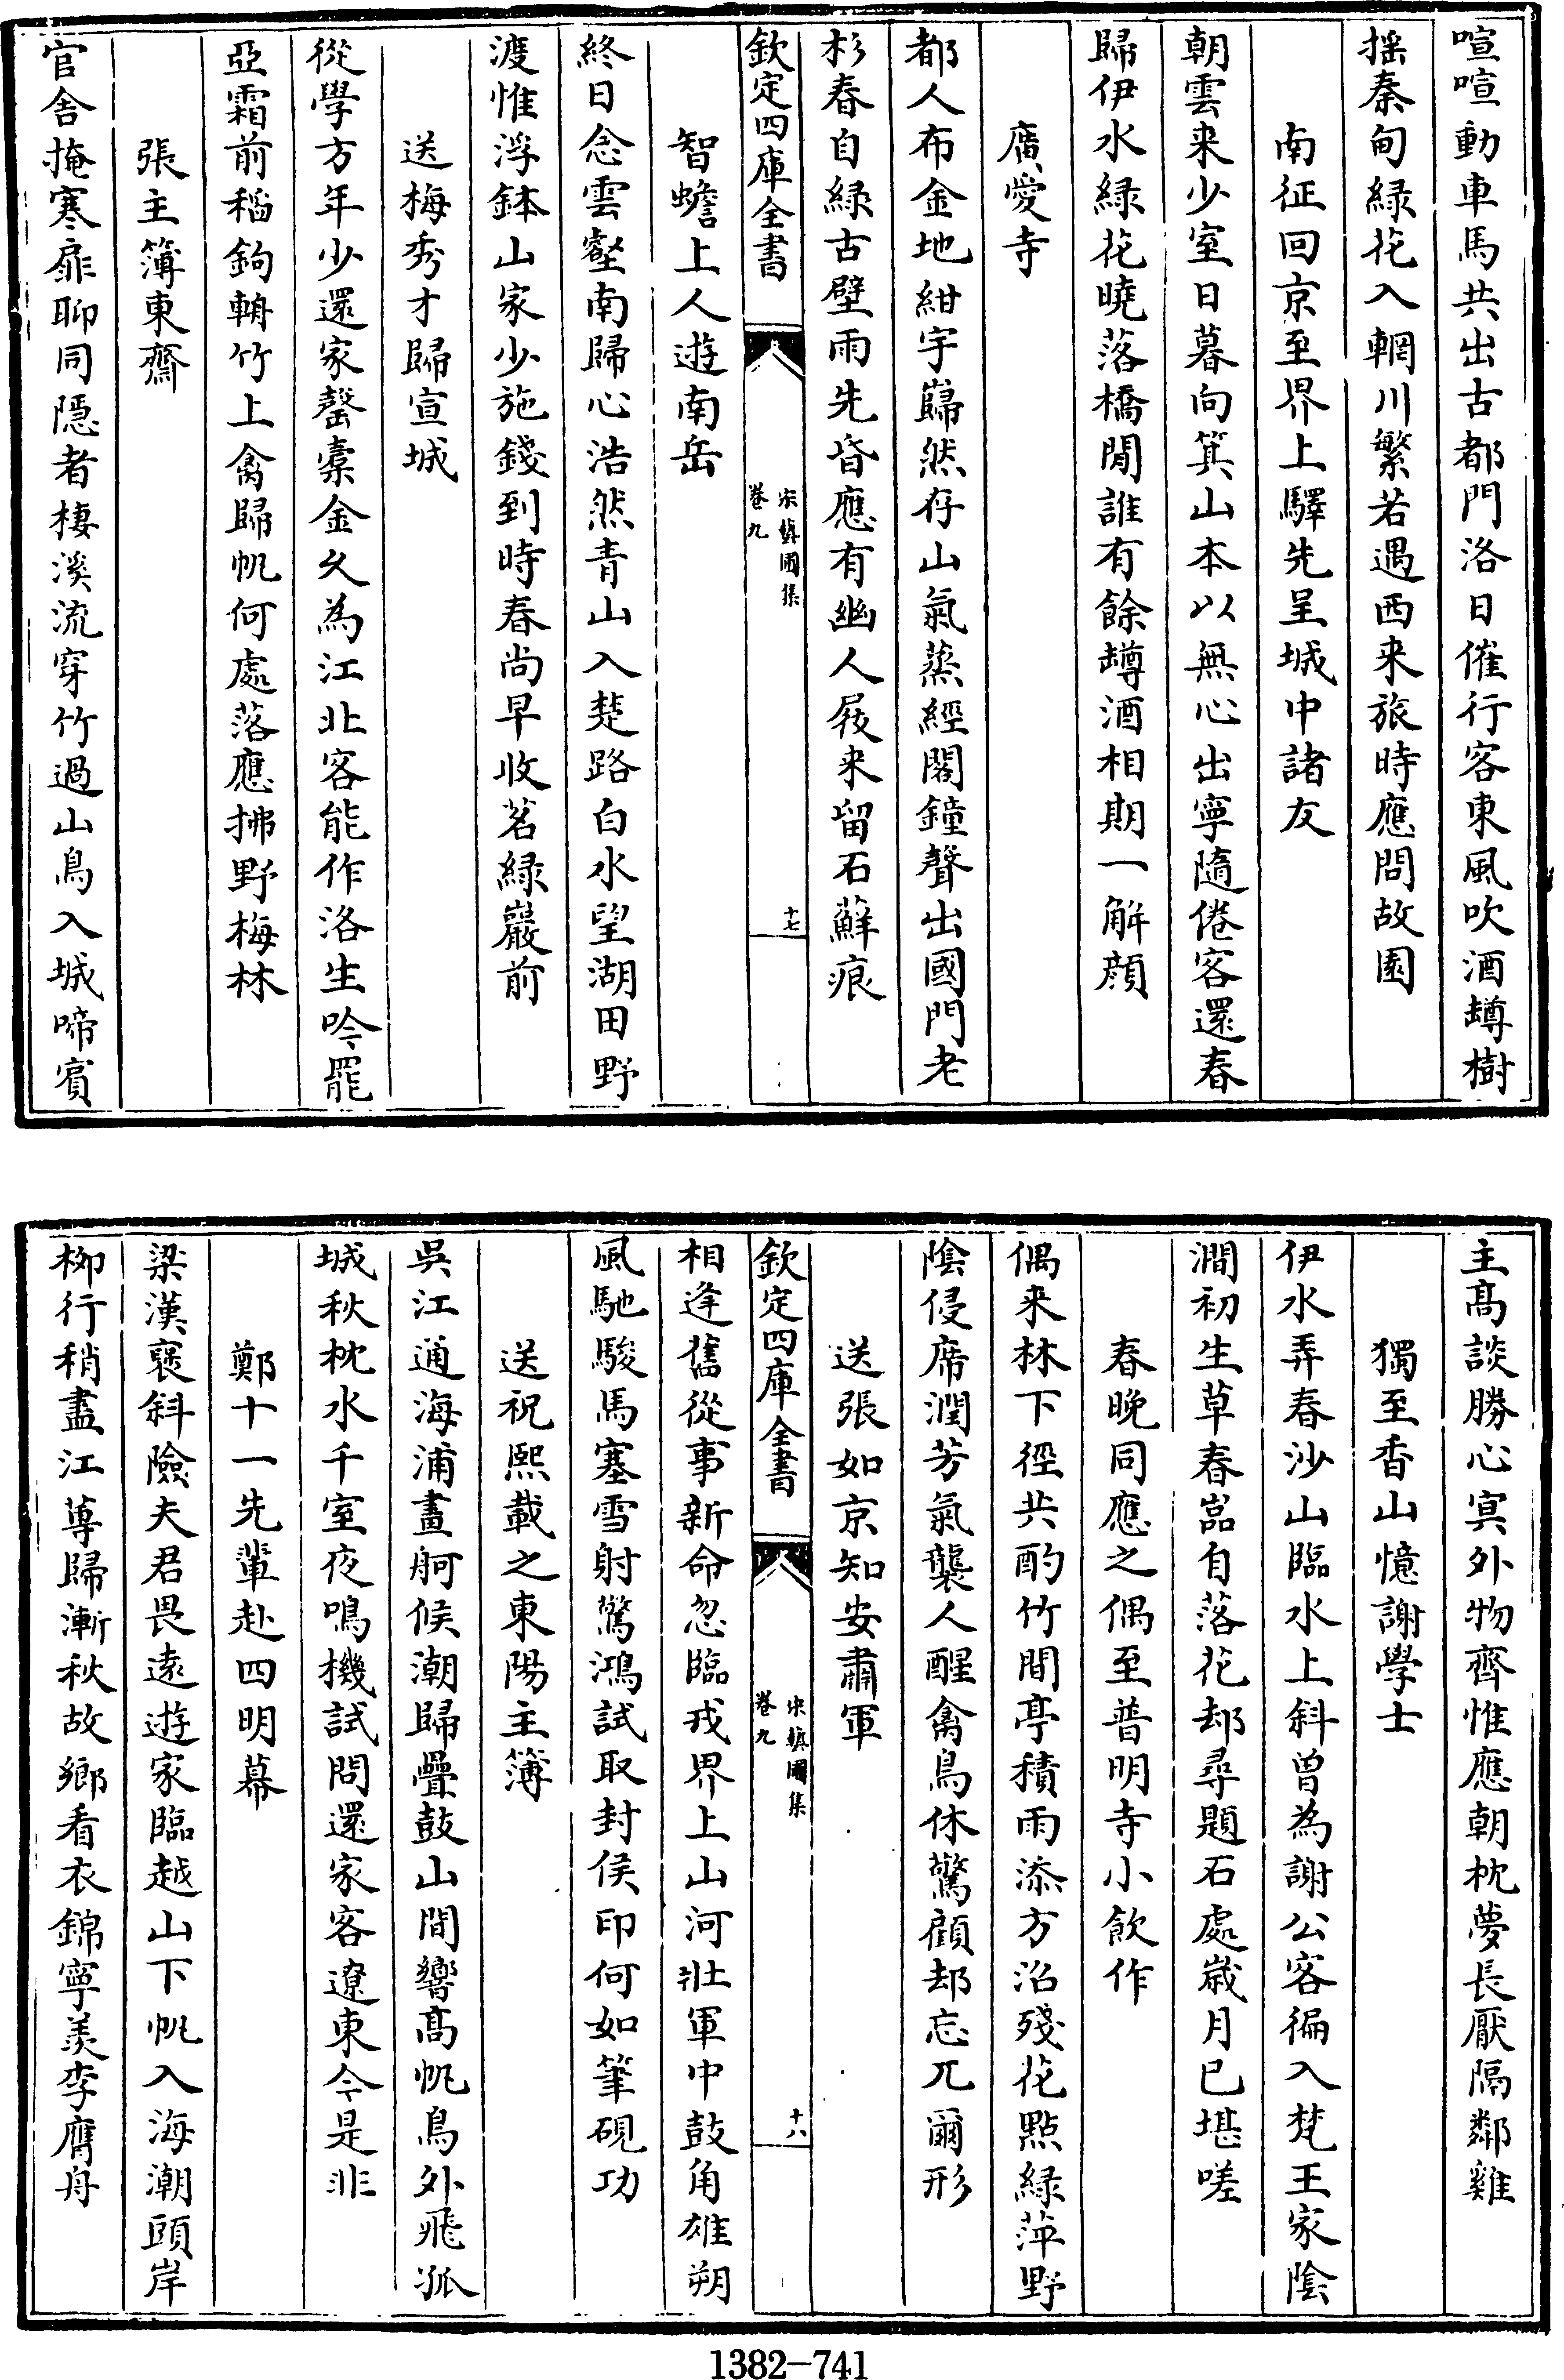 喧喧動車馬共出古都門洛日催行客東風吹酒罇樹
揺秦甸緑花入輞川繁若遇西来旅時應問故園
南征回京至界上驛先呈城中諸友
朝雲来少室日暮向箕山本以無心出寧隨倦客還春
歸伊水緑花曉落橋閒誰有餘罇酒相期一解顔
廣愛寺
都人布金地紺宇巋然存山氣蒸經閣鐘聲出國門老
杉春自緑古壁雨先昏應有幽人屐来留石蘚痕
欽定四庫全書
宋藝圃集
卷九
十七
智蟾上人遊南岳
終日念雲壑南歸心浩然青山入楚路白水望湖田野
渡惟浮鉢山家少施錢到時春尚早收茗緑巖前
送梅秀才歸宣城
從學方年少還家罄槖金久為江北客能作洛生吟罷
亞霜前稻鉤輈竹上禽歸帆何處落應拂野梅林
張主簿東齋
官舎掩寒扉聊同隱者棲溪流穿竹過山鳥入城啼賓
主髙談勝心冥外物齊惟應朝枕夢長厭隔鄰雞
獨至香山憶謝學士
伊水弄春沙山臨水上斜曽為謝公客徧入梵王家陰
澗初生草春嵓自落花却尋題石處嵗月已堪嗟
春晚同應之偶至普明寺小飲作
偶来林下徑共酌竹間亭積雨添方沼殘花點緑萍野
陰侵席潤芳氣襲人醒禽鳥休驚顧却忘兀爾形
送張如京知安肅軍
欽定四庫全書
宋藝圃集
卷九
十八
相逢舊從事新命忽臨戎界上山河壯軍中鼓角雄朔
風馳駿馬塞雪射驚鴻試取封侯印何如筆硯功
送祝熙載之東陽主簿
吳江通海浦畫舸候潮歸疊鼓山間響髙帆鳥外飛孤
城秋枕水千室夜鳴機試問還家客遼東今是非
鄭十一先輩赴四明幕
梁漢褒斜險夫君畏逺遊家臨越山下帆入海潮頭岸
栁行稍盡江蓴歸漸秋故鄉看衣錦寧羨李膺舟
1382-741